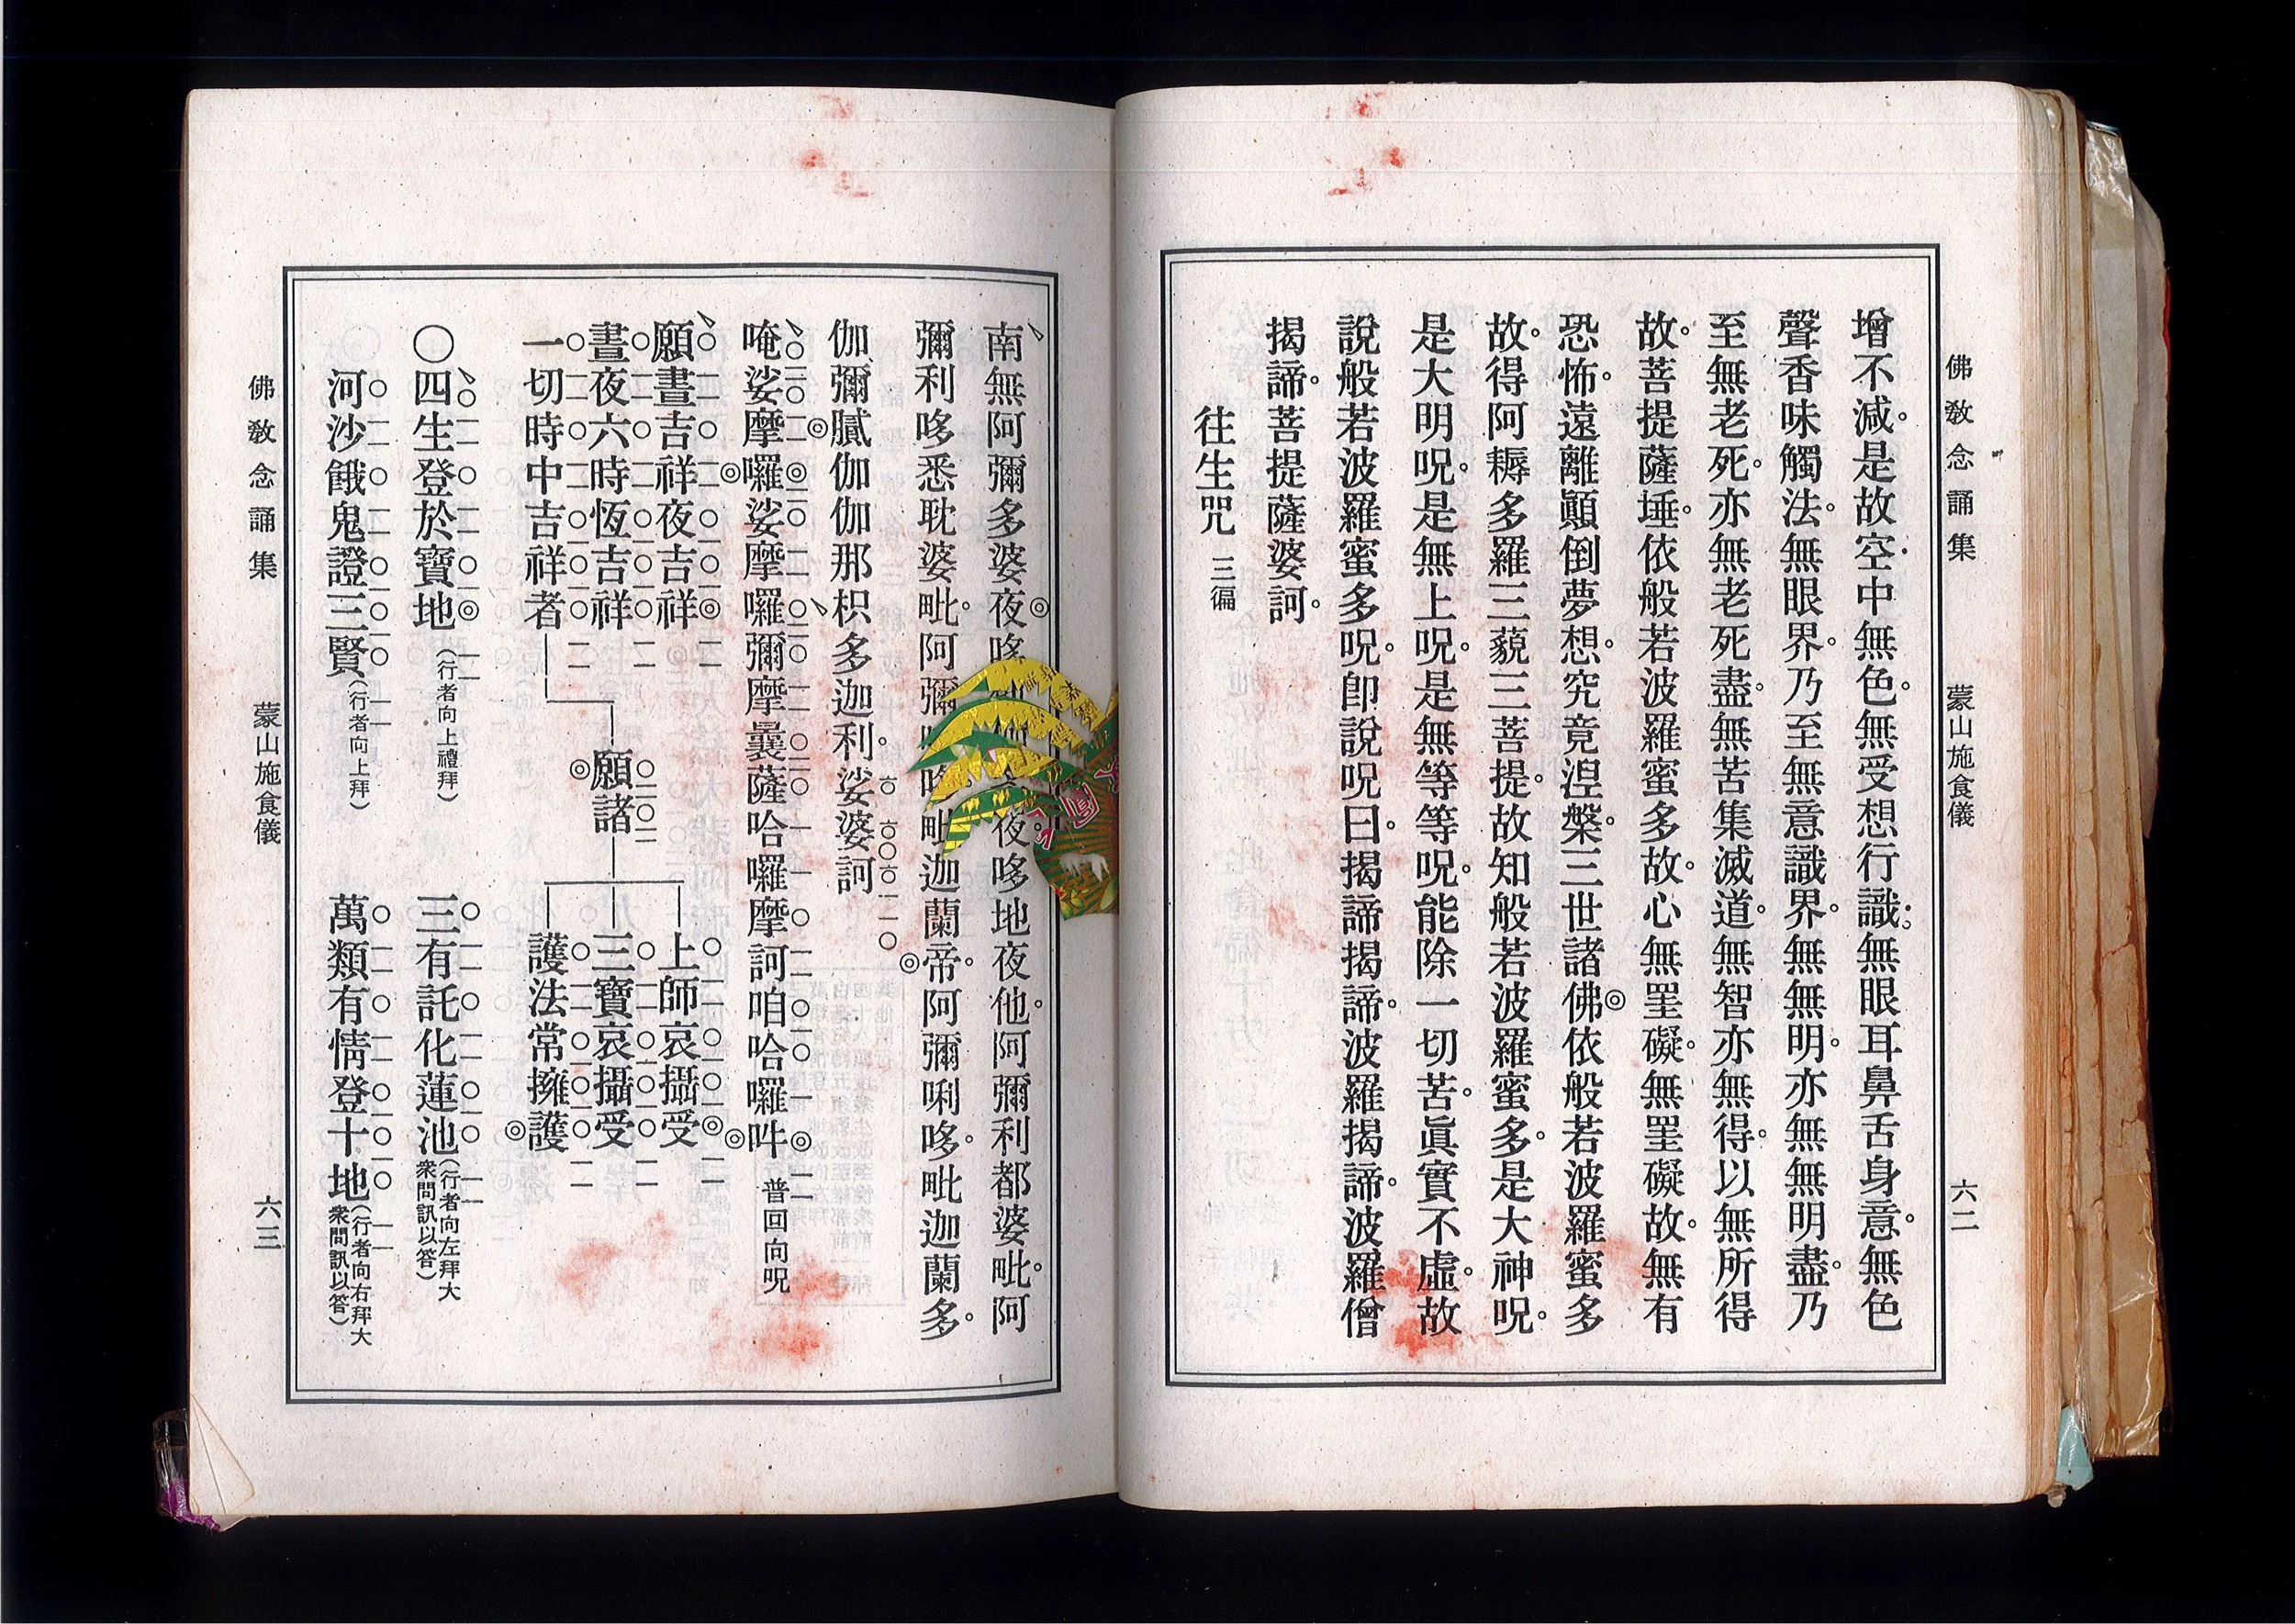 佛教念誦集 蒙山施食儀 六二
增不減。是故空中無色。無受想行識。無眼耳鼻舌身意。無色
聲香味觸法。無眼界。乃至無意識界。無無明。亦無無明盡。乃
至無老死。亦無老死盡。無苦集滅道。無智亦無得。以無所得
故。菩提薩埵。依般若波羅蜜多故。心無罣礙。無罣礙故。無有
恐怖。遠離顚倒夢想。究竟湼槃。三世諸佛◎依般若波羅蜜多
故。得阿耨多羅三藐三菩提。故知般若波羅蜜多。是大神呪。
是大明呪。是無上呪。是無等等呪。能除一切苦。眞實不虛。故
說般若波羅蜜多呪。卽說呪曰。揭諦揭諦。波羅揭諦。波羅僧
揭諦。菩提薩婆訶。
往生咒 三徧
南無阿彌多婆夜 夜。哆地夜他。阿彌利都婆毗。阿
彌利哆悉耽婆毗。阿彌 哆毗迦蘭帝。阿彌唎哆。毗迦蘭多。
伽彌膩伽伽那枳多迦利。娑婆訶
唵娑摩囉娑摩囉彌摩曩薩哈囉摩訶咱哈囉吽 普回向呪
願晝吉祥夜吉祥
晝夜六時恆吉祥
一切時中吉祥者
願諸
上師哀攝受
三寶哀攝受
護法常擁護
〇四生登於寶地(行者向上禮拜) 三有託化蓮池(行者向左拜大衆問訊以答)
河沙餓鬼證三賢(行者向上拜) 萬類有情登十地(行者向右拜大衆問訊以答)
佛教念誦集 蒙山施食儀 六三